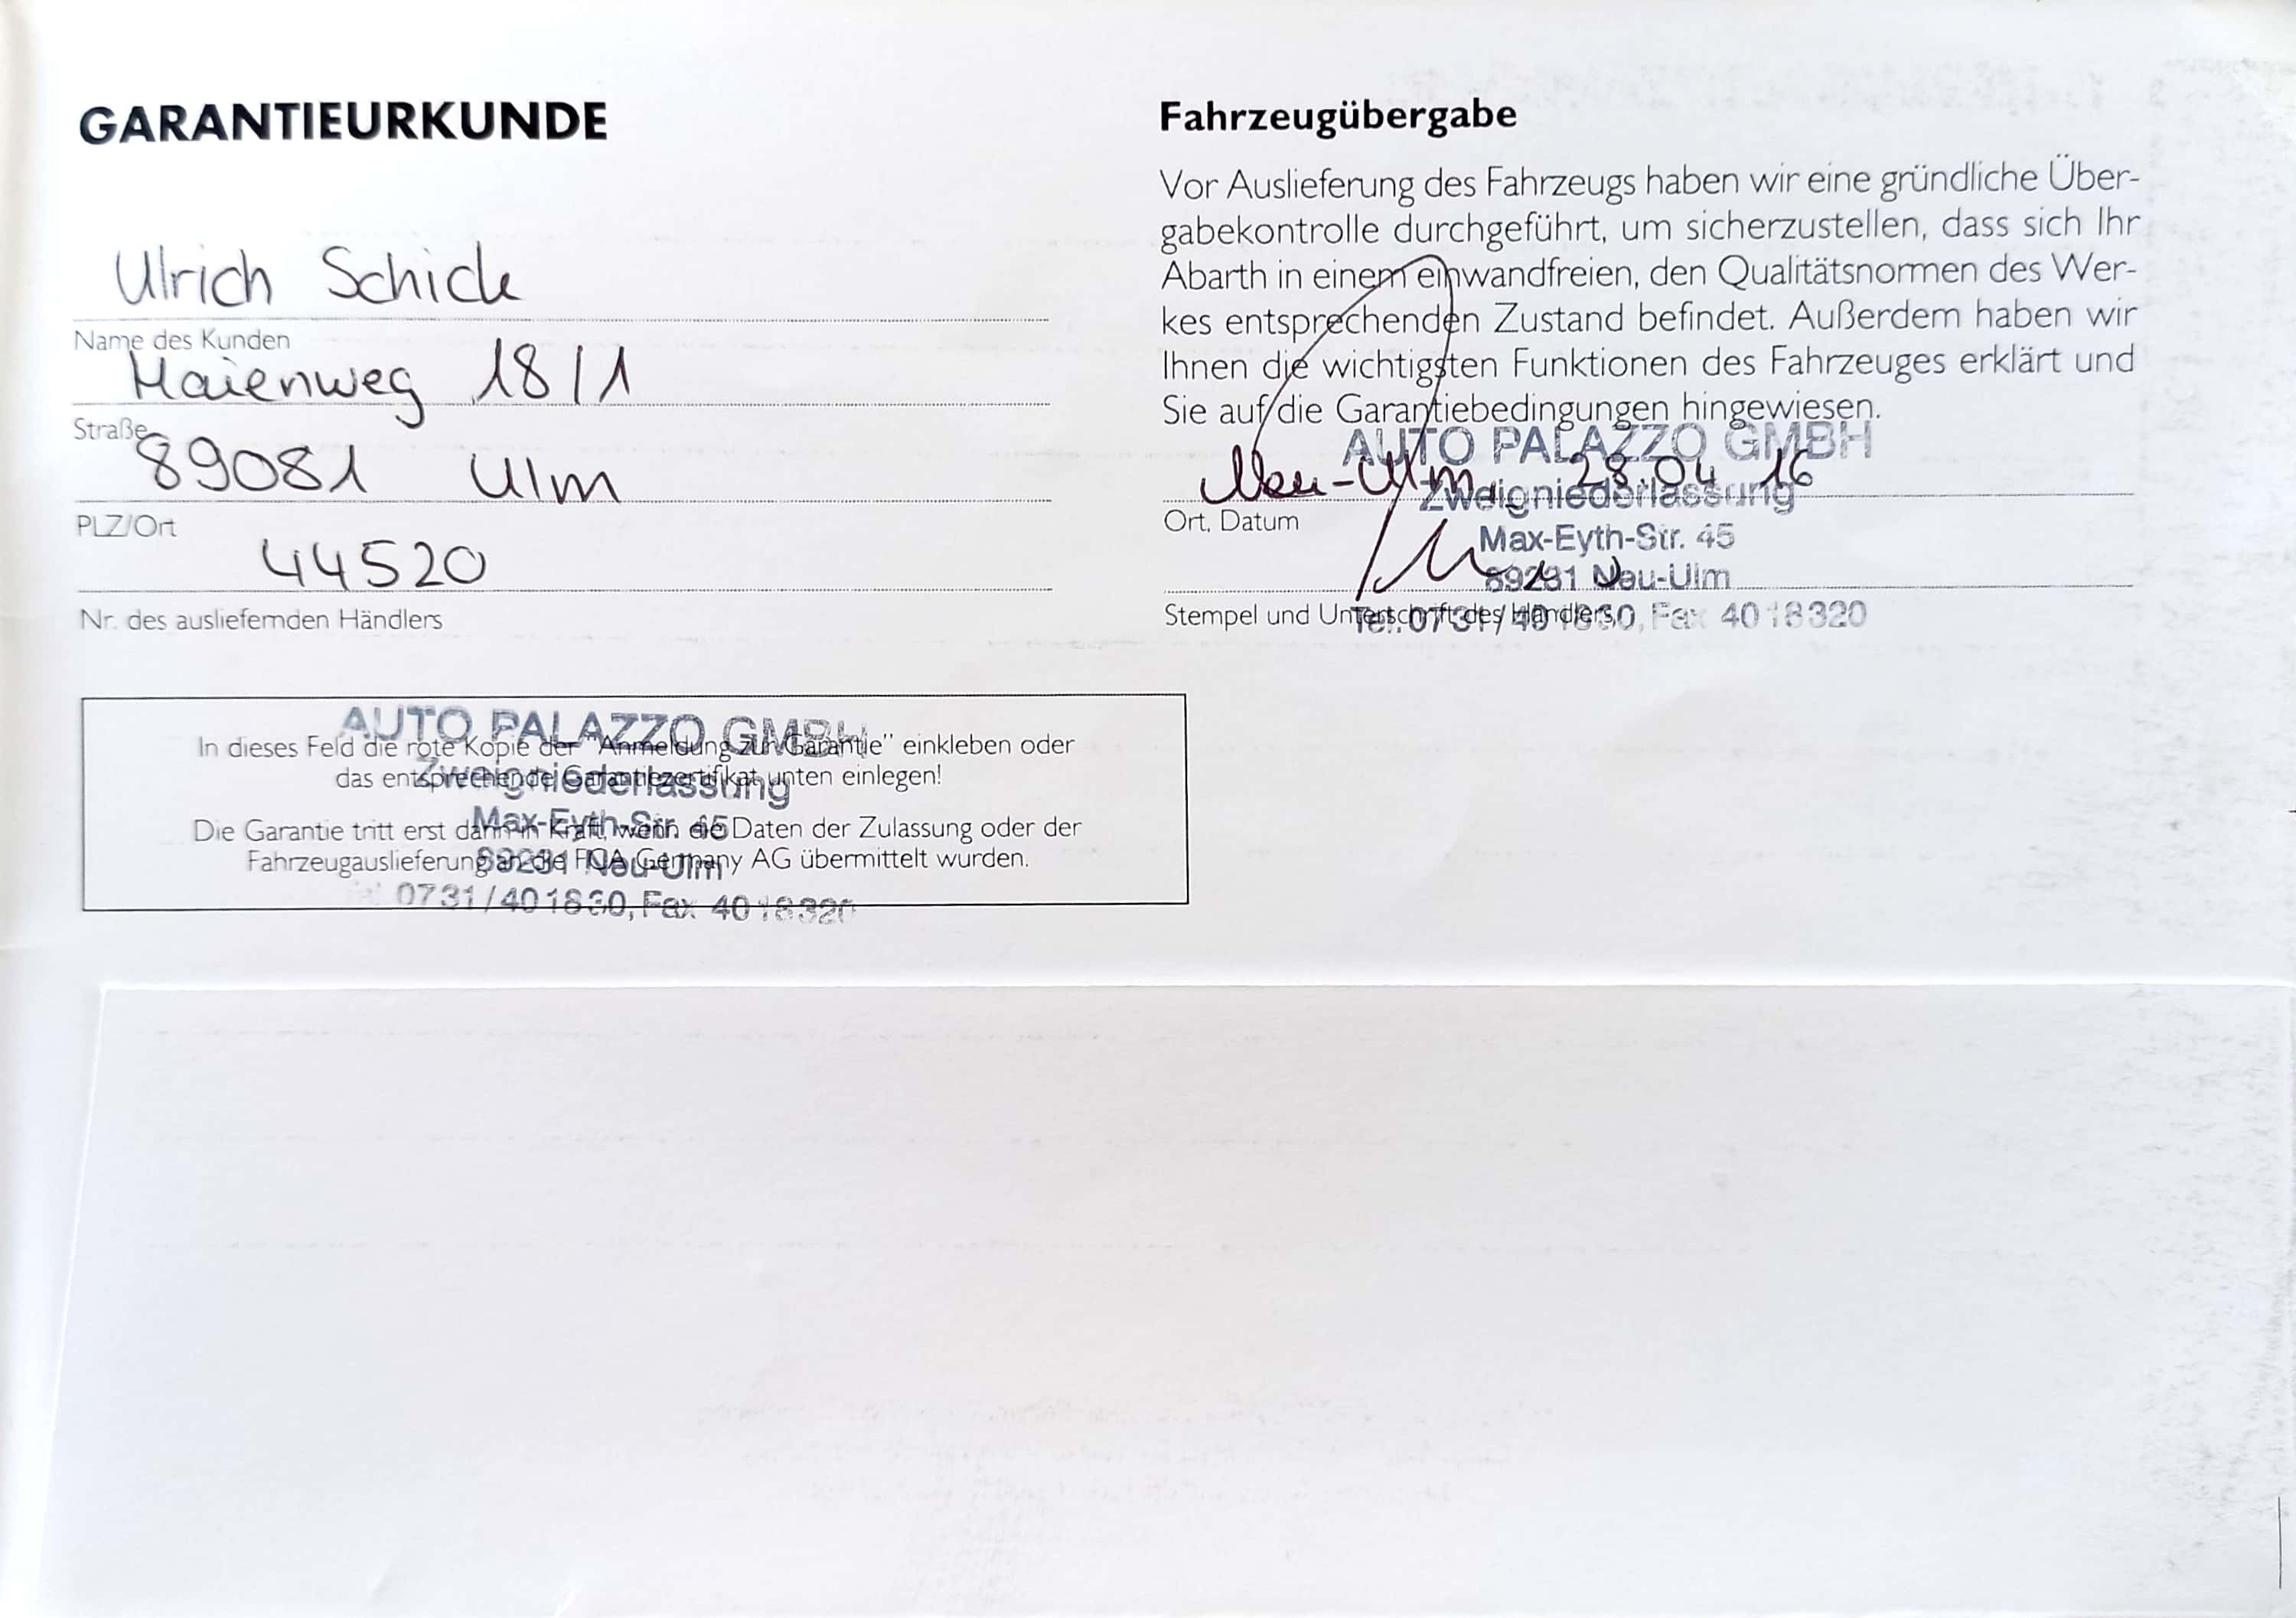 GARANTIEURKUNDE
Ulrich Schick
Name des Kunden
Maienweg 18/1
Straße
89081 Ulm
PLZ/Ort
44520
Nr. des ausliefernden Händlers
Fahrzeugübergabe
Vor Auslieferung des Fahrzeugs haben wir eine gründliche Über-
gabekontrolle durchgeführt, um sicherzustellen, dass sich Ihr
Abarth in einem einwandfreien, den Qualitätsnormen des Wer-
kes entsprechenden Zustand befindet. Außerdem haben wir
Ihnen die wichtigsten Funktionen des Fahrzeuges erklärt und
Sie auf die Garantiebedingungen hingewiesen.
AUTO PALAZZO GMBH
Neu-Ulm, 28.04 16
Zweigniederlassung
Ort, Datum
Max-Eyth-Str. 45
89231 Neu-Ulm
Stempel und Unterschrift des Händlers
Tel. 0731/401830, Fax 4018320
AUTO PALAZZO GMBH
In dieses Feld die rote Kopie der "Anmeldung zur Garantie" einkleben oder
das entsprechende Garantiezertifikat unten einlegen!
Zweigniederlassung
Max-Eyth-Str. 45
Die Garantie tritt erst dann in Kraft, wenn die Daten der Zulassung oder der
Fahrzeugauslieferung an die FCA Germany AG übermittelt wurden.
89231 Neu-Ulm
0731/401830, Fax 4018320